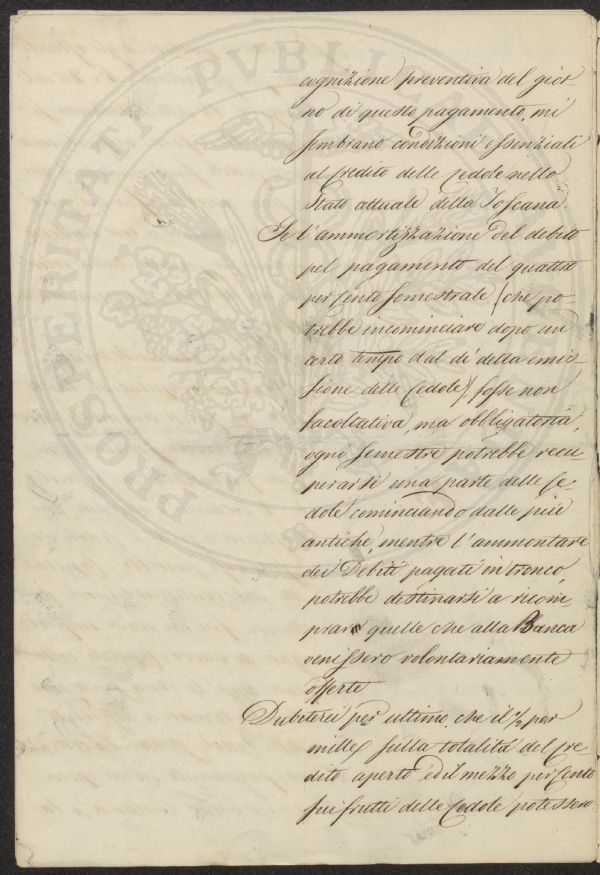 PROSPERITATI PVBLICAE
cognizione preventiva del gior-
no di questo pagamento, mi
sembrano condizioni essenziali
al Credito delle Cedole nello
Stato attuale della Toscana.
Se l'ammortizzazione del debito
pel pagamento del quattro
per Cento Semestrale (che po-
trebbe incominciare dopo un
certo tempo dal dì della emis
sione delle Cedole) fosse non
facoltativa, ma obbligatoria,
ogni Semestre potrebbe recu-
perarsi una parte delle Ce-
dole cominciando dalle più
antiche, mentre l'ammontare
dei Debiti pagati in tronco,
potrebbe destinarsi a ricom-
prare quelle che alla Banca
venissero volontariamente
offerte
Dubiterei per ultimo, che il ½ per
mille sulla totalità del Cre
dito aperto ed il mezzo per Cento
sui frutti delle Cedole potessero